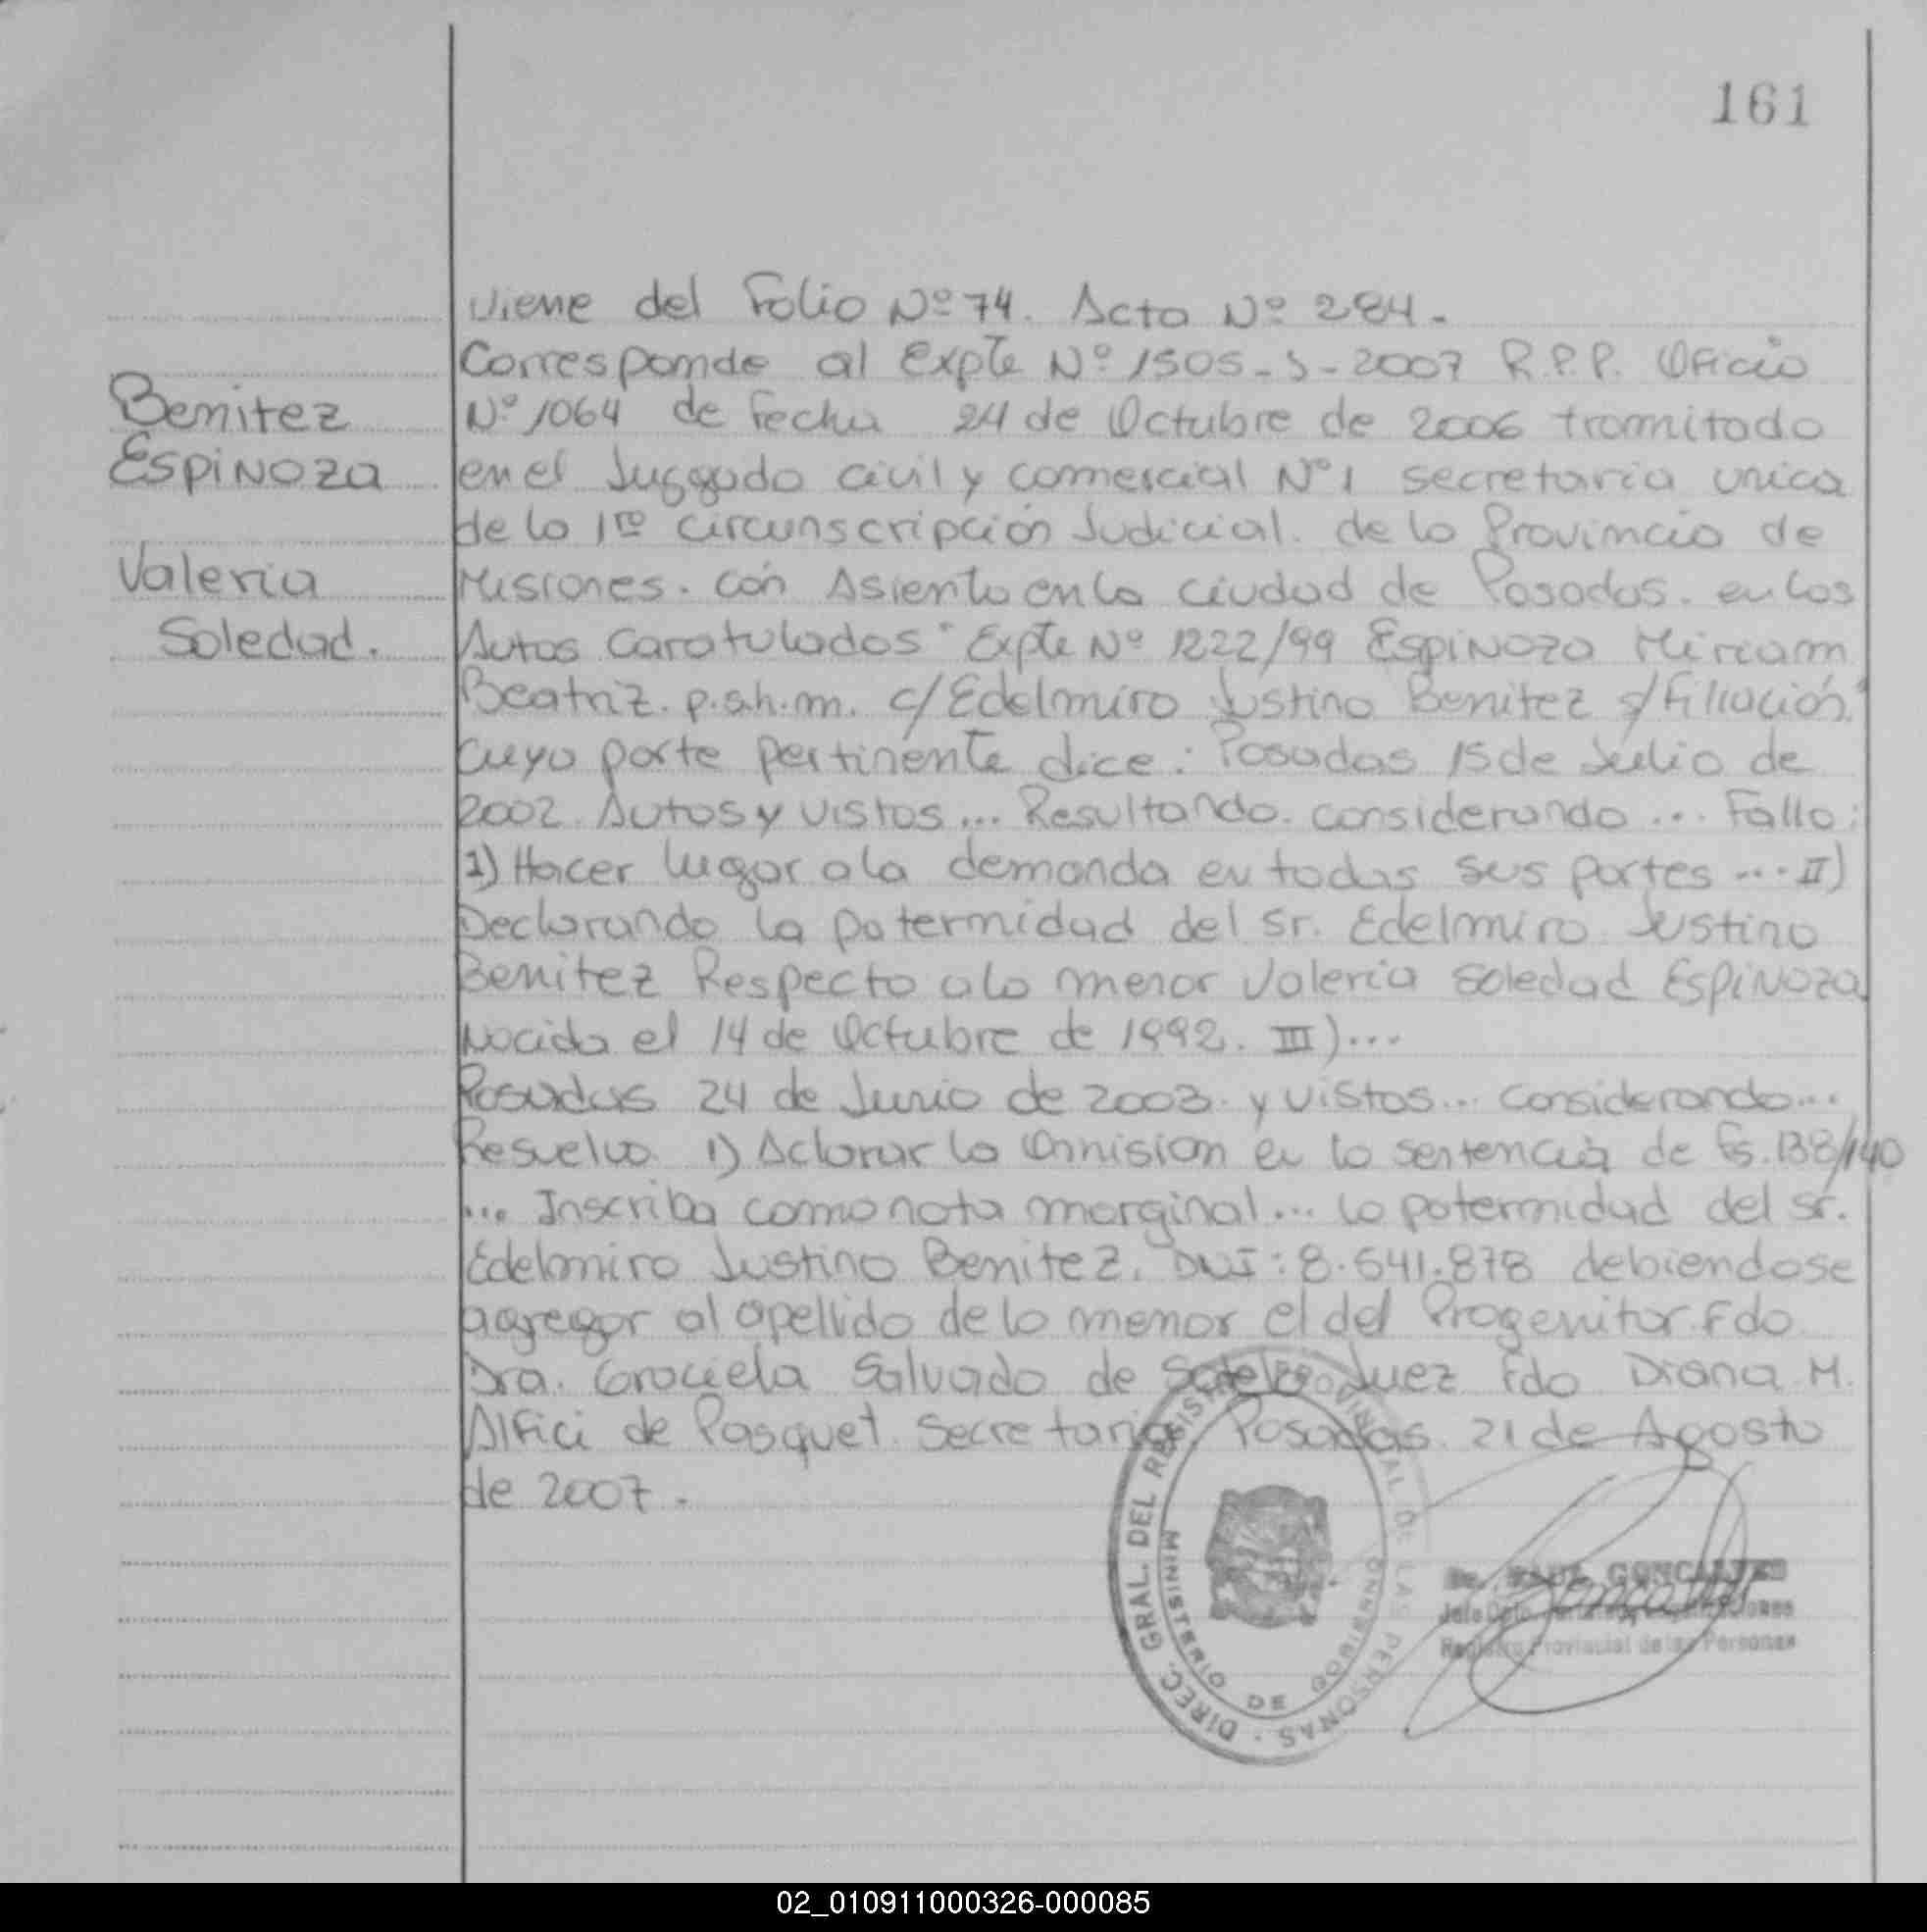 161
Viene del Folio Nº 74. Acta Nº 284.
Corresponde al Expte Nº 1505-J-2007 R.P.P. Oficio
Nº 1064 de Fecha 24 de Octubre de 2006 tramitado
en el Juzgado civil y comercial Nº1 secretaria unica
de la 1ra circunscripción Judicial. de la Provincia de
Misiones. con Asiento en la ciudad de Posadas. en los
Autos Caratulados "Expte Nº 1222/99 Espinoza Miriam
Beatriz. p.s.h.m. c/Edelmiro Justino Benitez s/filiación"
cuya parte pertinente dice: Posadas 15 de Julio de
2002. Autos y vistos... Resultando. considerando... Fallo:
1) Hacer lugar a la demanda en todas sus partes... II)
Declarando la paternidad del Sr. Edelmiro Justino
Benitez Respecto a la menor Valeria Soledad Espinoza
Nacida el 14 de Octubre de 1992. III)...
Posadas 24 de Junio de 2003. y vistos... considerando...
Resuelvo. 1) Aclarar la Omision en la sentencia de fs. 138/140
... Inscriba como nota marginal... la paternidad del Sr.
Edelmiro Justino Benitez. DNI: 8.541.878 debiendose
agregar al apellido de la menor el del Progenitor. Fdo
Dra. Graciela Salvado de Sotelo Juez Fdo Diana M.
Alfici de Pasquet Secretaria Posadas. 21 de Agosto
de 2007.
Benitez
Espinoza
Valeria
Soledad.
DIREC. GRAL. DEL REGISTRO PROVINCIAL DE LAS PERSONAS
MINISTERIO DE GOBIERNO
RAUL GONCALVES
Jefe Dpto.
Registro Provincial de las Personas
02_010911000326-000085